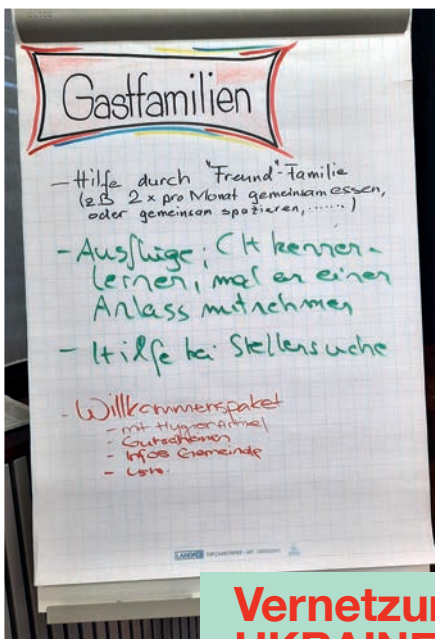 Gastfamilien
- Hilfe durch "Freund"-Familie
(zB 2x pro Monat gemeinsam essen,
oder gemeinsam spazieren, ......)
- Ausflüge; CH kennen-
lernen, mal an einen
Anlass mitnehmen
- Hilfe bei Stellensuche
- Willkommenspaket
- mit Hygieneartikel
- Gutscheinen
- Infos Gemeinde
- usw.
LANDRÉ
Vernetzun